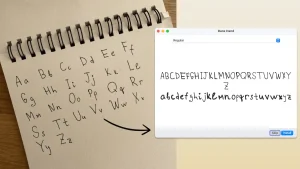 Aa Bb Cc Dd Ee Ff
Gg Hh Ii Jj Kk Ll
Mm Nn Oo Pp Qq Rr
Ss Tt Uu Vv Ww Xx
Yy Zz
Regular
ABCDEFGHIJKLMNOPQRSTUVWXY
Z
abcdefghijklmnopqrstuvwxyz